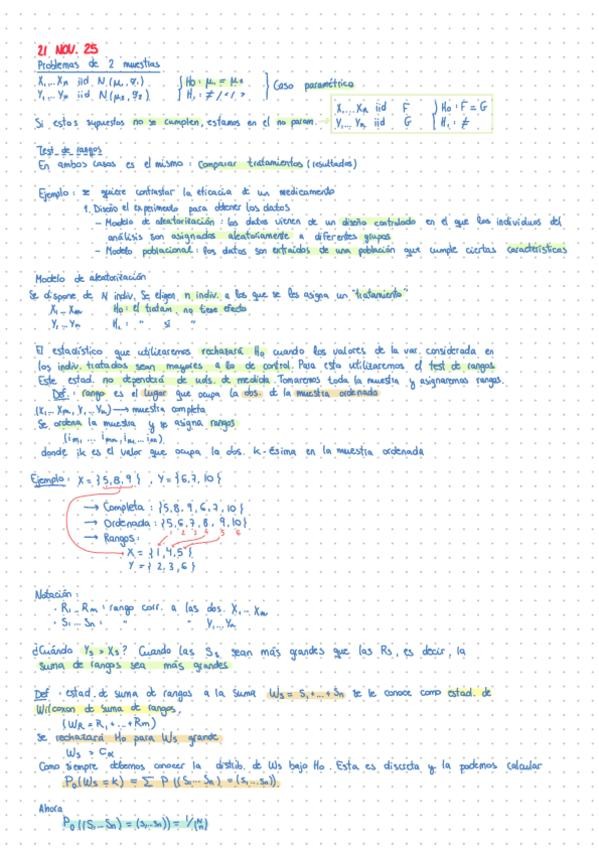 21 NOV. 25
Problemas de 2 muestras
X₁...Xm iid N(μ₁, σ₁) } H₀: μ₁ = μ₂ } Caso paramétrico
Y₁...Yn iid N(μ₂, σ₂) } H₁: ≠ / < / >
X₁...Xm iid F } H₀: F = G
Si estos supuestos no se cumplen, estamos en el no param. → Y₁...Yn iid G } H₁: ≠
Test de rangos
En ambos casos es el mismo: comparar tratamientos (resultados)
Ejemplo: se quiere contrastar la eficacia de un medicamento
1. Diseño el experimento para obtener los datos
- Modelo de aleatorización: los datos vienen de un diseño controlado en el que los individuos del
análisis son asignados aleatoriamente a diferentes grupos
- Modelo poblacional: los datos son extraídos de una población que cumple ciertas características
Modelo de aleatorización
Se dispone de N indiv. Se eligen n indiv. a los que se les asigna un "tratamiento"
X₁...Xm H₀: el tratam. no tiene efecto
Y₁...Yn H₁: " si "
El estadístico que utilizaremos rechazará H₀ cuando los valores de la var. considerada en
los indiv. tratados sean mayores a lo de control. Para esto utilizaremos el test de rangos
Este estad. no dependerá de uds. de medida. Tomaremos toda la muestra y asignaremos rangos.
Def: rango es el lugar que ocupa la obs. de la muestra ordenada
(X₁...Xm, Y₁...Yn) → muestra completa
Se ordena la muestra y se asigna rangos
donde ik es el valor que ocupa la obs. k-ésima en la muestra ordenada
Ejemplo: X = {5,8,9}, Y = {6,7,10}
→ Completa: {5,8,9,6,7,10}
→ Ordenada: {5,6,7,8,9,10}
1 2 3 4 5 6
→ Rangos:
X = {1,4,5}
Y = {2,3,6}
Notación:
· R₁...Rm: rango corr. a las obs. X₁...Xm
· S₁...Sn: " " Y₁...Yn
¿Cuándo Ys > Xs? Cuando las Ss sean más grandes que las Rs, es decir, la
suma de rangos sea más grandes
Def: estad. de suma de rangos a la suma Ws = S₁+...+Sn se le conoce como estad. de
Wilcoxon de suma de rangos.
(WR = R₁+...+Rm)
Se rechazará H₀ para Ws grande
Ws > Cα
Como siempre debemos conocer la distrib. de Ws bajo H₀. Esta es discreta y la podemos calcular
P₀(Ws = k) = Σ P((S₁...Sn) = (s₁...sn)).
Ahora
P₀((S₁...Sn) = (s₁...sn)) = 1/(N n)